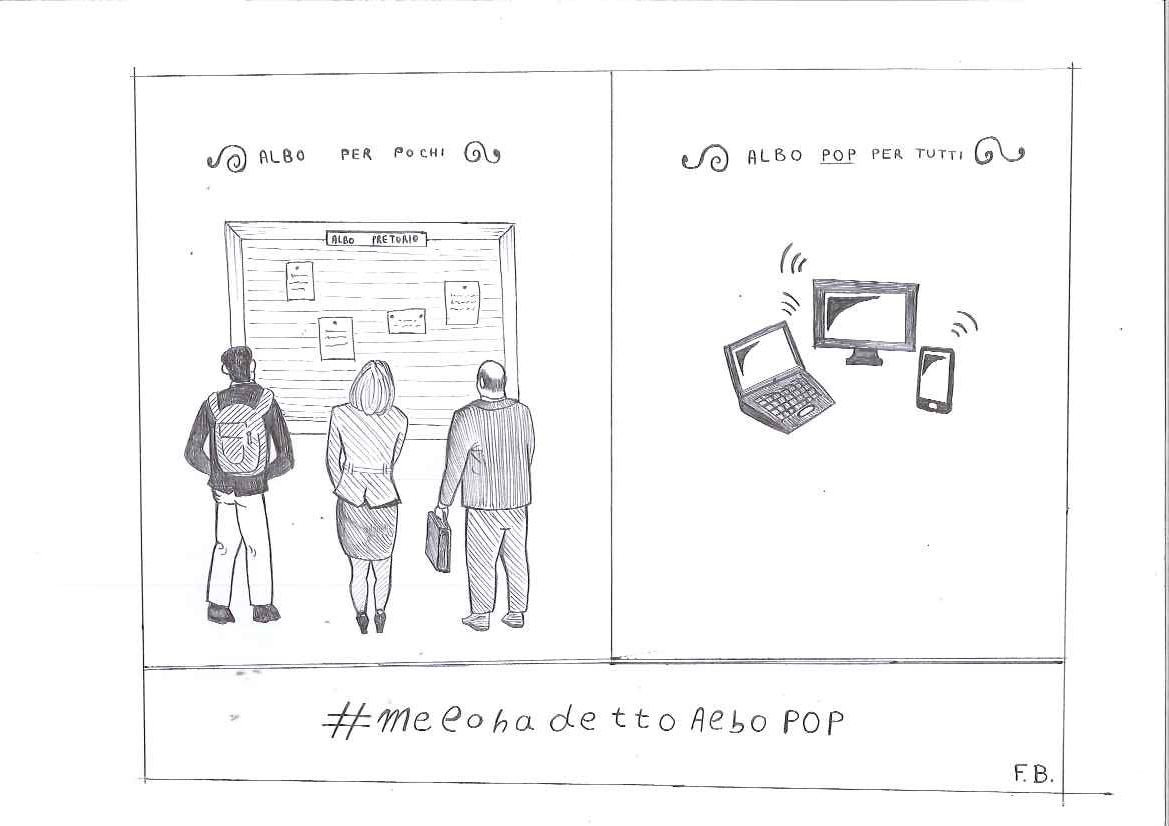 ALBO PER POCHI
ALBO PRETORIO
ALBO POP PER TUTTI
#melohadettoAlboPOP
F.B.